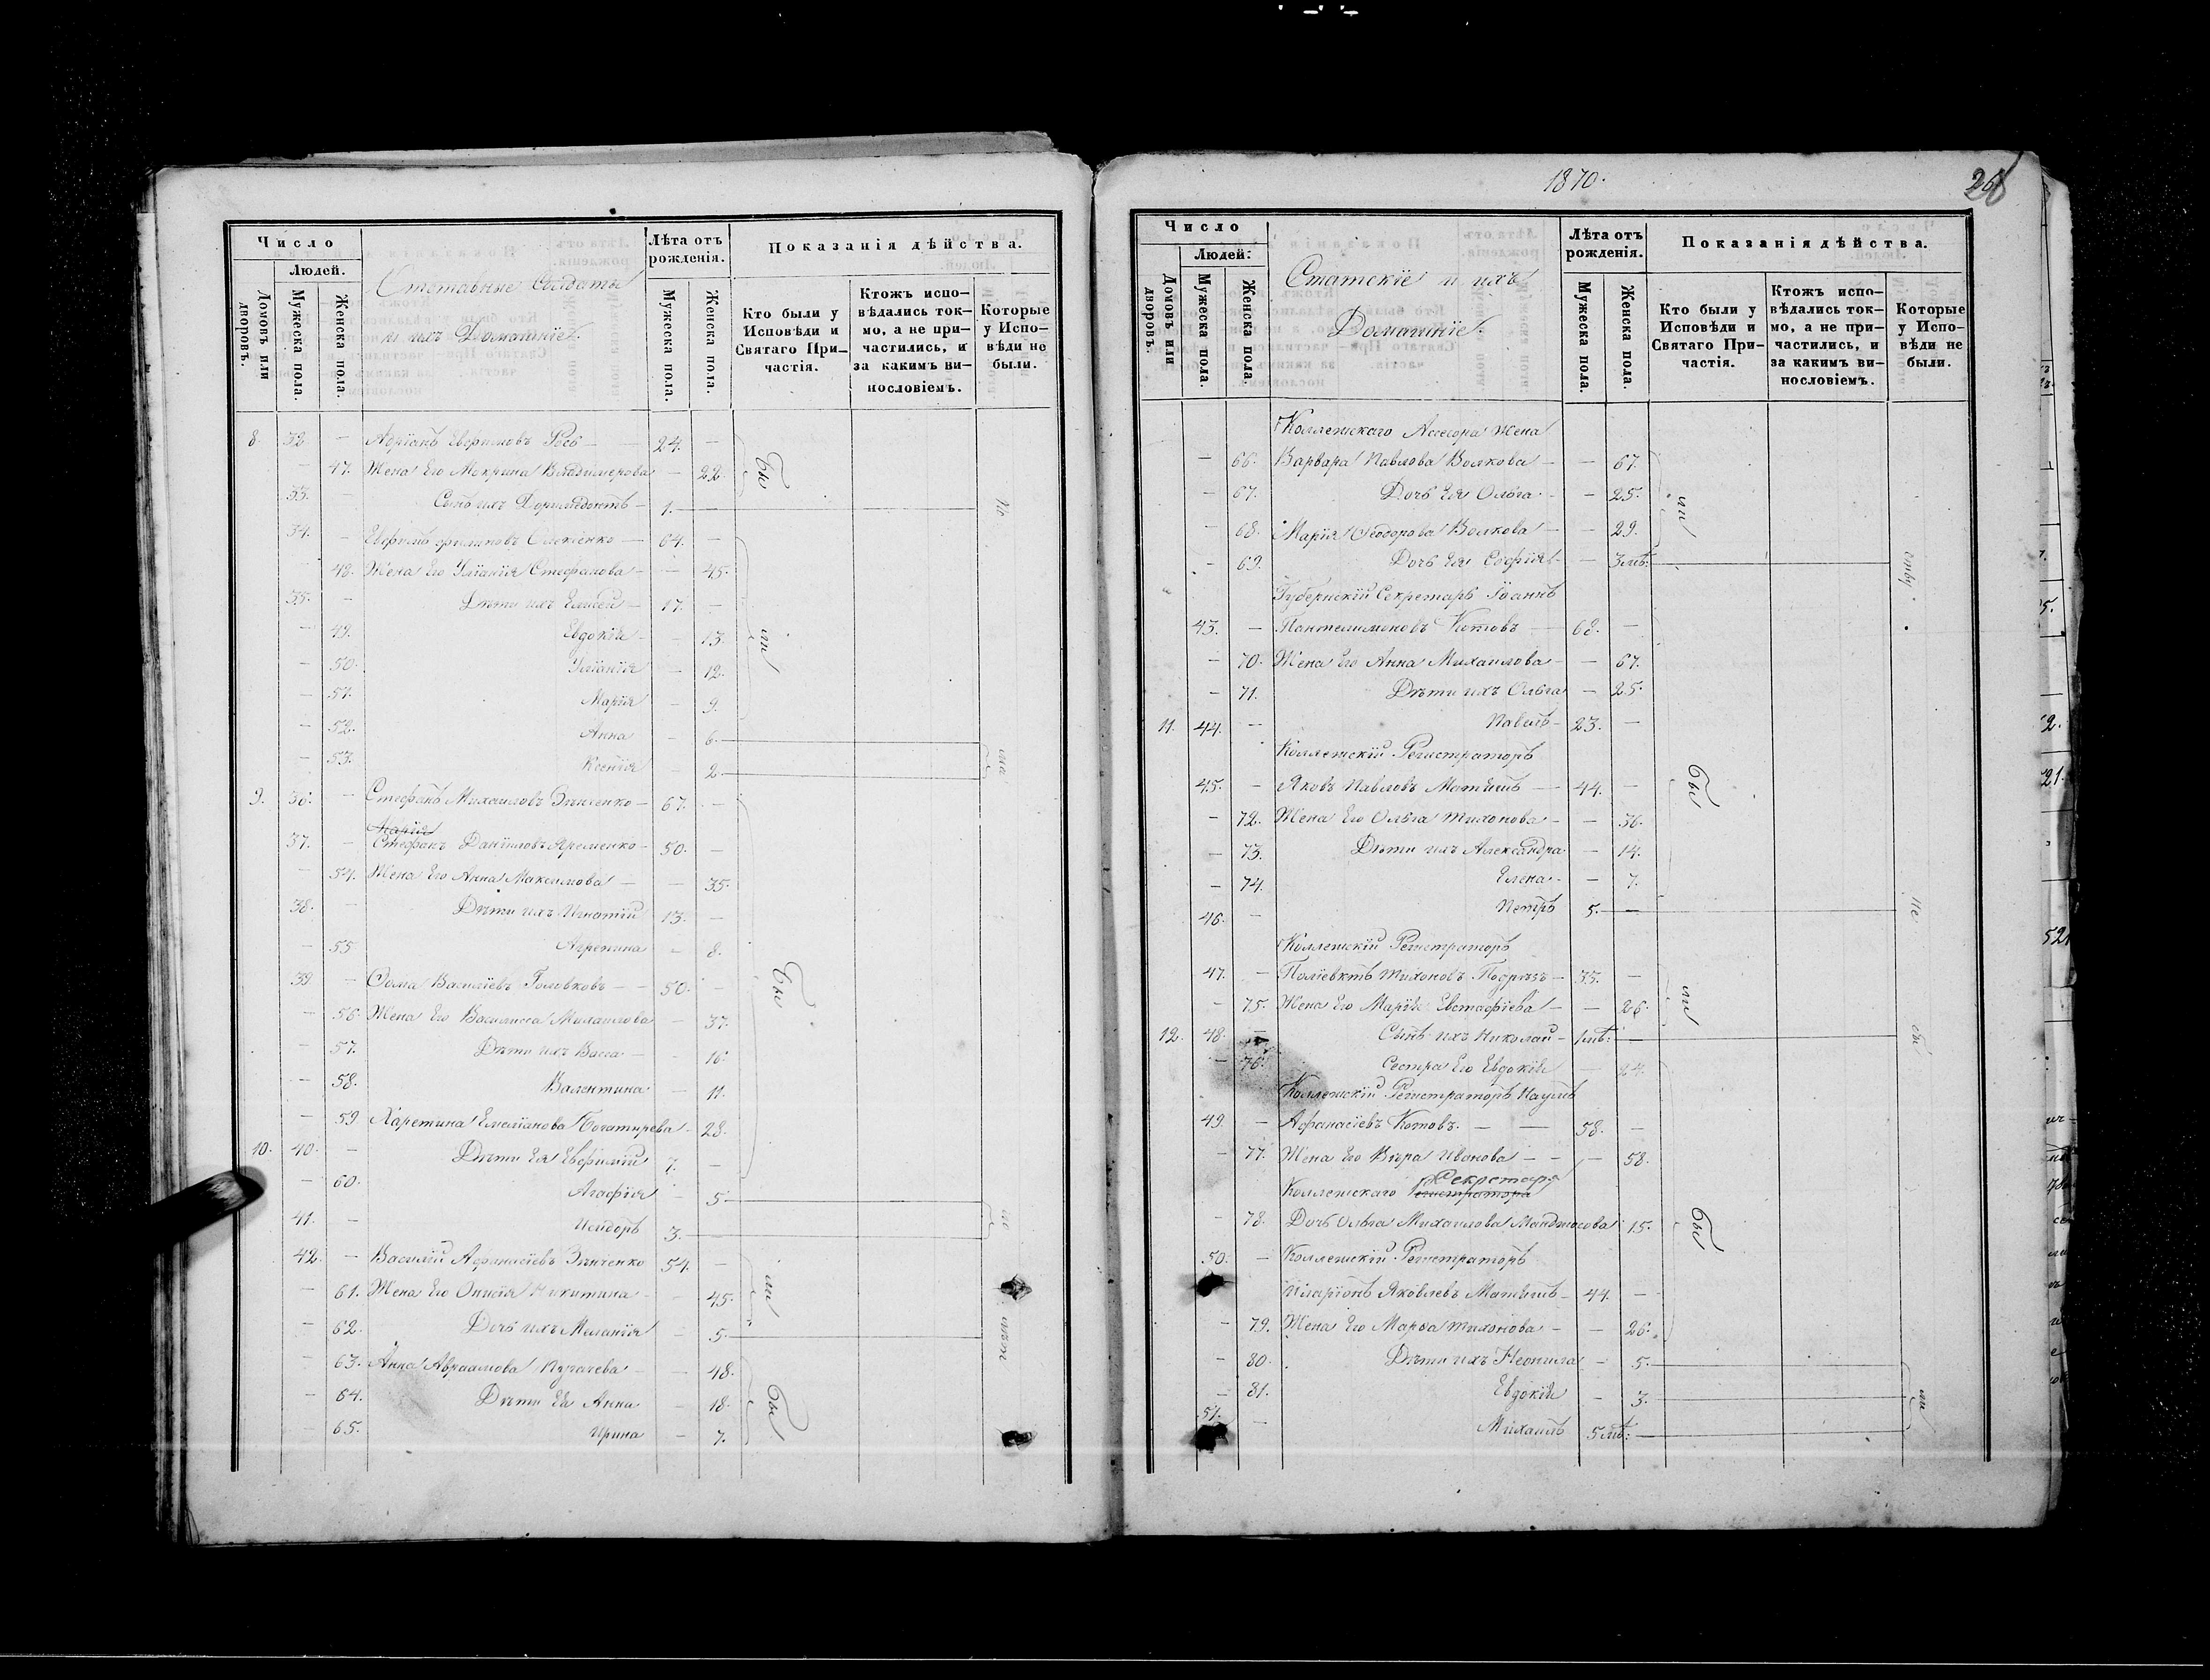 Число
Людей.
Домовъ или дворовъ.
Мужеска пола.
Женска пола.
Отставные Солдаты
и ихъ Домашніе.
Лѣта отъ рожденія.
Мужеска пола.
Женска пола.
Показанія дѣйства.
Кто были у Исповѣди и Святаго Причастія.
Ктожъ исповѣдались токмо, а не причастились, и за какимъ винословіемъ.
Которые у Исповѣди не были.
8. 32 — Адріанъ Евфимовъ 24. —
— 47. Жена Его Макрина Владимерова — 22.
33. — Сынъ ихъ Доримедонтъ — 1. —
34. — Евфимъ Филиповъ 64. —
— 48. Жена Его Уліанія Стефанова — — 45.
35. — Дѣти ихъ Елисей — 17. —
— 49. Евдокія — 13.
— 50. Уліанія — 12.
— 51. Марія — 9.
— 52. Анна — 6.
— 53. Ксенія — 2.
9. 36. — Стефанъ Михаиловъ Зѣнченко — 67. —
Марія
37. — Стефанъ Даніиловъ Яременко — 50. —
— 54. Жена Его Анна Максимова — — 35.
38. — Дѣти ихъ Игнатій 13. —
— 55 Агрепина — 8.
39 — Ѳома Василіевъ Головковъ — 50. —
— 56. Жена Его Василисса Михаилова — 37.
— 57. Дѣти ихъ Васса — — 16.
— 58. Валентина — 11.
— 59 Харетина Емеліанова Богатирева — 28.
10. 40. — Дѣти Ея Евфимій 7. —
— 60. Агафія — 5
41. — Исидоръ 3. —
42. — Василій Афанасіевъ Зѣнченко 54. —
— 61. Жена Его Онисія Никитина — — 45.
— 62. Дочь ихъ Меланія — 5.
— 63. Анна Авраамова Пугачева — — 48.
— 64. Дѣти Ея Анна — 18.
— 65. Ирина — 7.
бы
ли
бы
ли
бы
1870.
Число
Людей.
Домовъ или дворовъ.
Мужеска пола.
Женска пола.
Статскіе и ихъ
Домашніе.
Лѣта отъ рожденія.
Мужеска пола.
Женска пола.
Показанія дѣйства.
Кто были у Исповѣди и Святаго Причастія.
Ктожъ исповѣдались токмо, а не причастились, и за какимъ винословіемъ.
Которые у Исповѣди не были.
Коллежскаго Асессора Жена
— 66. Варвара Павлова Волкова — — 67.
— 67. Дочь Ея Ольга — — 25.
— 68. Марія Ѳеодорова Волкова — — 29.
— 69. Дочь Ея Софія — — 3 мѣ:
Губернскій Секретарь Іоаннъ
43. — Пантелимоновъ Котовъ — 68. —
— 70. Жена Его Анна Михаилова — — 67.
— 71. Дѣти ихъ Ольга — 25.
11. 44. — Павелъ — 23. —
Коллежскій Регистраторъ
45. — Яковъ Павловъ — 44. —
— 72. Жена Его Ольга Тихонова — — 36.
— 73. Дѣти ихъ Александра — 14.
— 74. Елена — — 7.
46. — Петръ 5. —
Коллежскій Регистраторъ
47. — Поліевктъ Тихоновъ — 35. —
— 75. Жена Его Марія Евстафіева — — 26.
12. 48. — Сынъ ихъ Николай — 1 мѣ: —
— 76. Сестра Его Евдокія — 24.
Коллежскій Регистраторъ Наумъ
49. — Афанасіевъ Котовъ. — 58. —
— 77. Жена Его Вѣра Иванова — — 58.
Секретаря
Коллежскаго Регистратора
— 78. Дочь Ольга Михаилова 15.
50. — Коллежскій Регистраторъ
Иларіонъ Яковлевъ — 44. —
— 79. Жена Его Марѳа Тихонова — — 26.
— 80. Дѣти ихъ Неонила — 5.
— 81. Евдокія — 3.
51. — Михаилъ 5 мѣ: —
ли
бы
ли
бы
Не
бы
ли